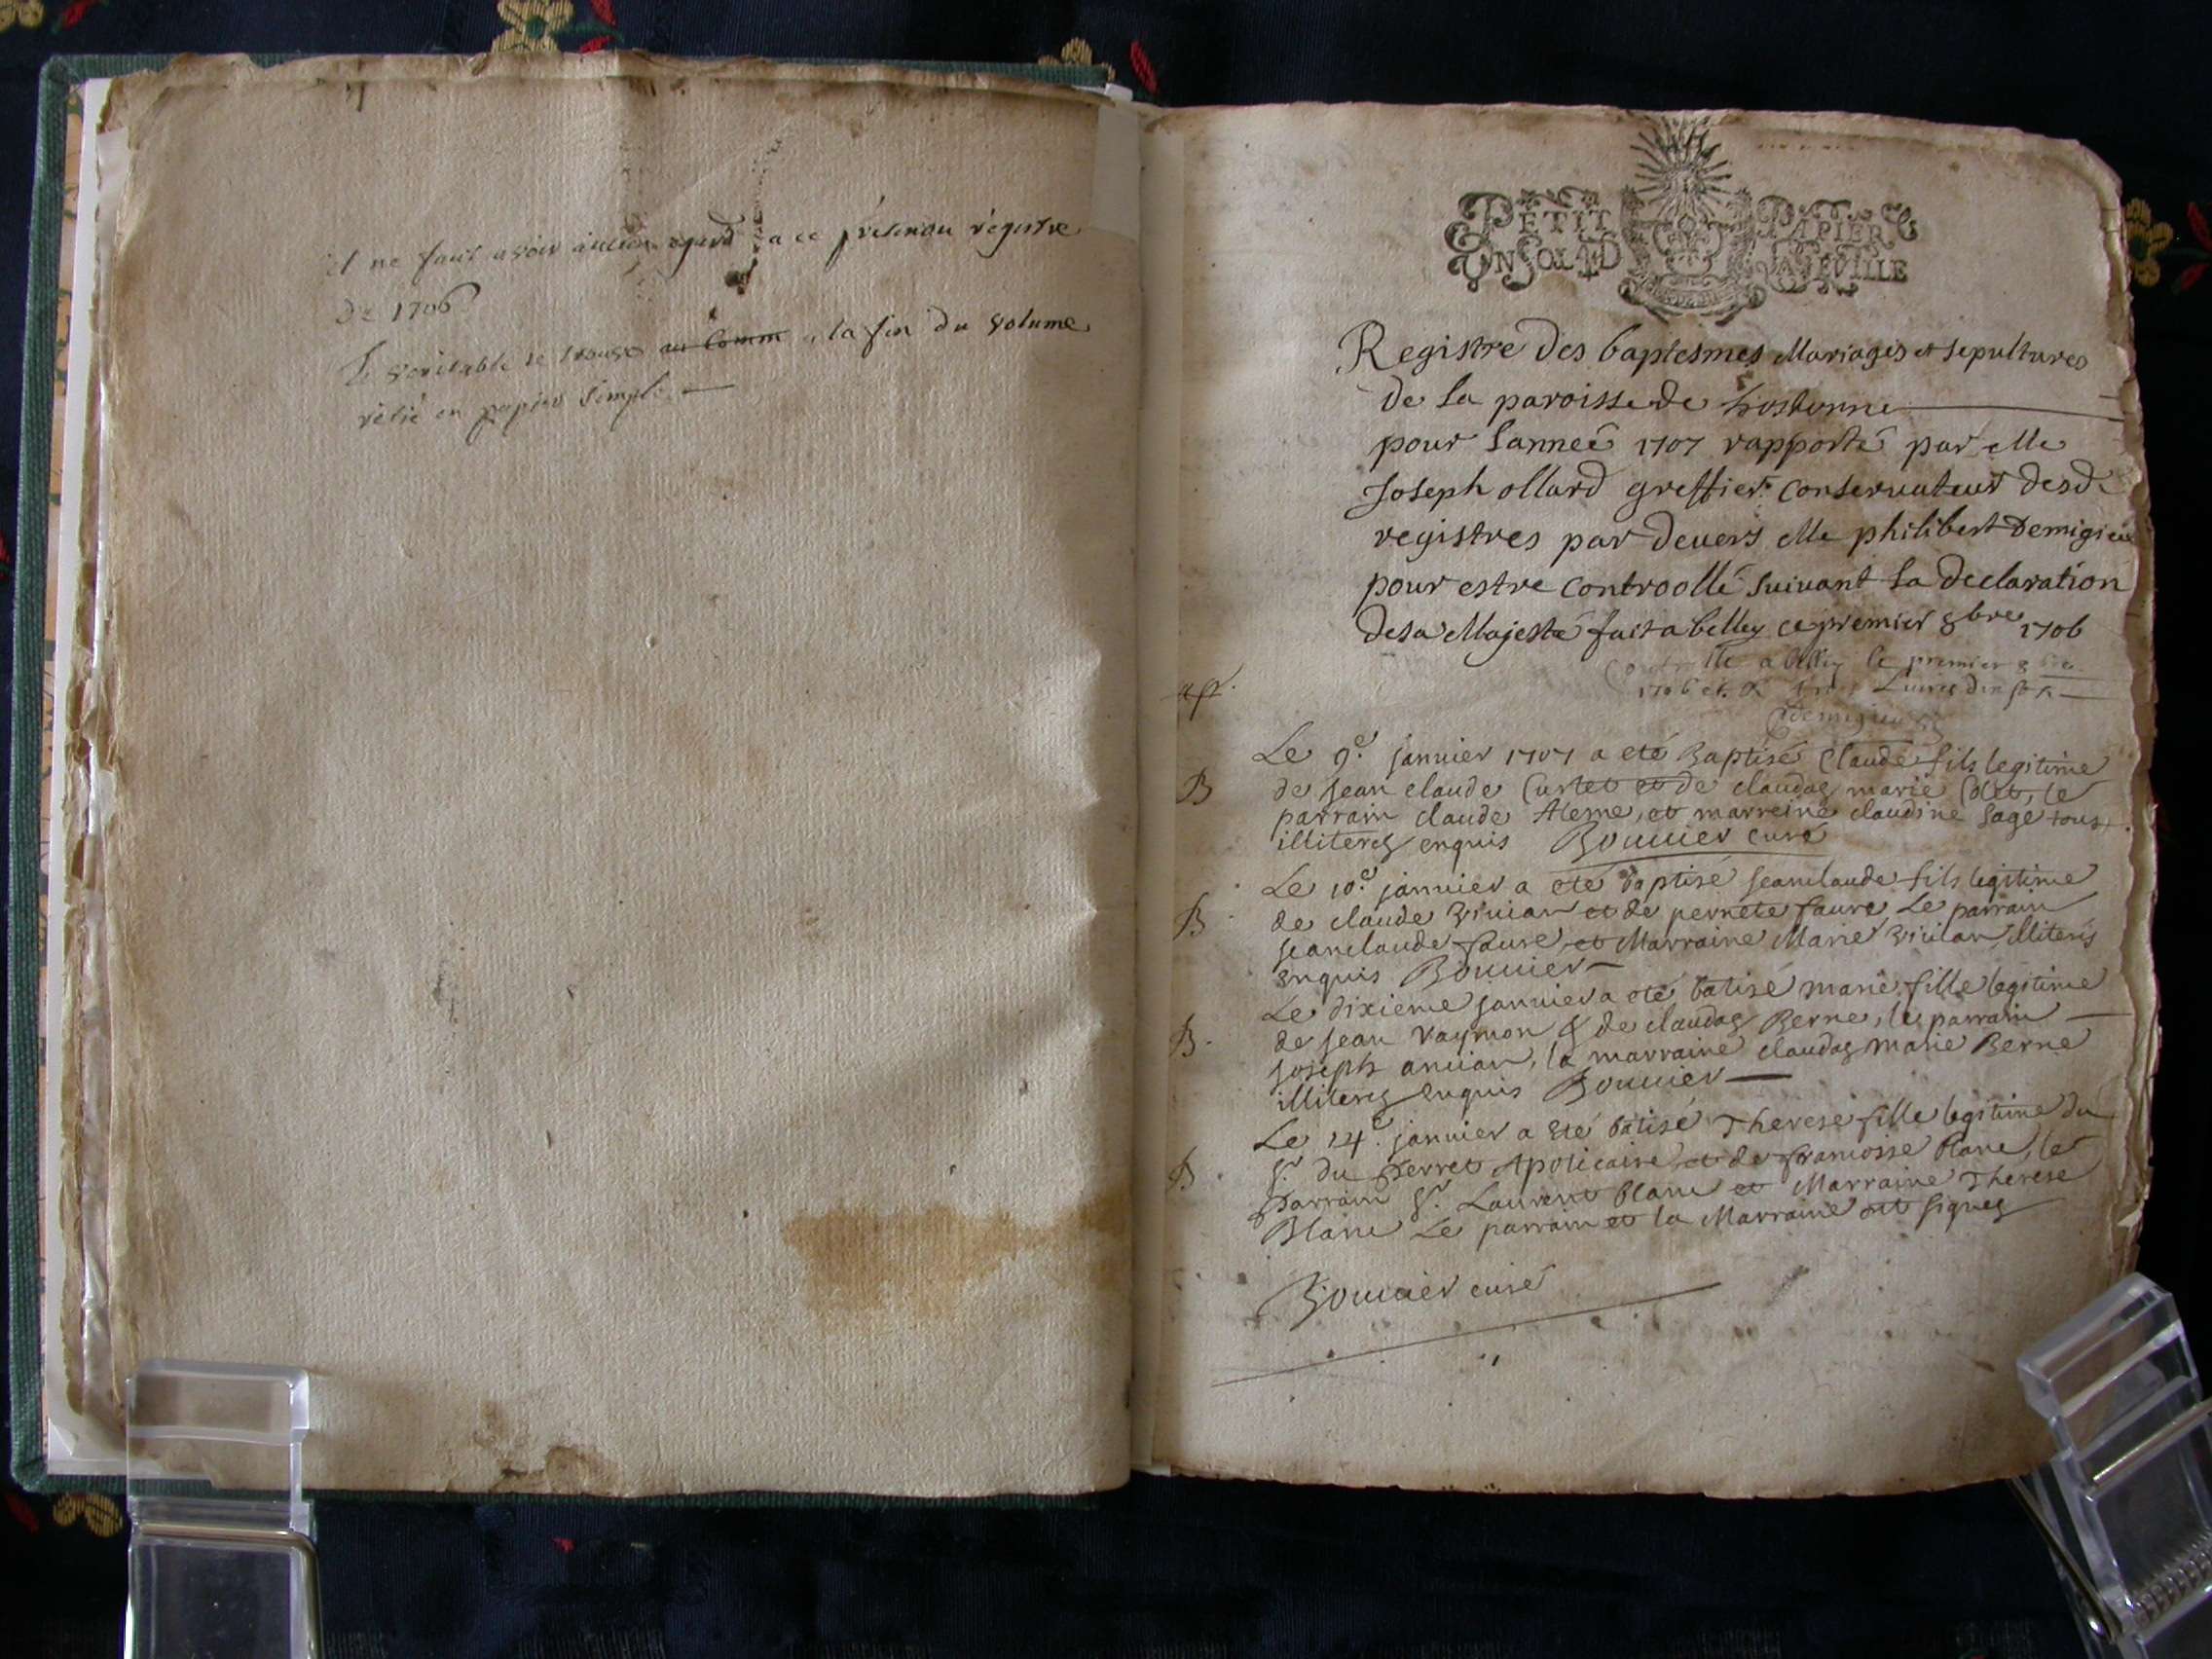 il ne faut avoir aucun egard a ce prétendu régistre
de 1706
le veritable se trouve au Comm a la fin du volume
rélié en papier simple
PETIT PAPIER
UN SOL LA FEVILLE
Registre des baptesmes Mariages et sepultures
de la paroisse de
pour Lanneé 1707 rapporté par Me
Joseph ollard greffier conservateur desd
registres par devers Me philibert Demigieu
pour estre controollé suivant la declaration
de sa Majesté fait a belley ce premier 8bre 1706
a belley le premier 8bre
1706 et R
Demigieu
Le 9e janvier 1707 a eté Baptisé Claude fils legitime
B de jean claude Curtet et de claudas marie Colet, le
parrain claude Aleme, et marreine claudine Sage tous
illiteres enquis Bouvier curé
Le 10e janvier a eté baptisé jeanclaude fils legitime
B de claude Vivian et de pernete faure Le parrain
jeanclaude faure, et Marraine Marie Vivian illiterés
enquis Bouvier
Le dixieme janvier a eté batisé marie fille legitime
B de jean Raymon & de claudas Berne, le parrain
joseph anvian, la marraine claudas marie Berne
illiteres enquis Bouvier
Le 14e janvier a eté batisé Therese fille legitime du
B Sr du Perret Apoticaire, et de francoise Blanc, le
Parrain Sr Laurent Blanc et Marraine Therese
Blanc Le parrain et la Marraine ont signes
Bouvier curé